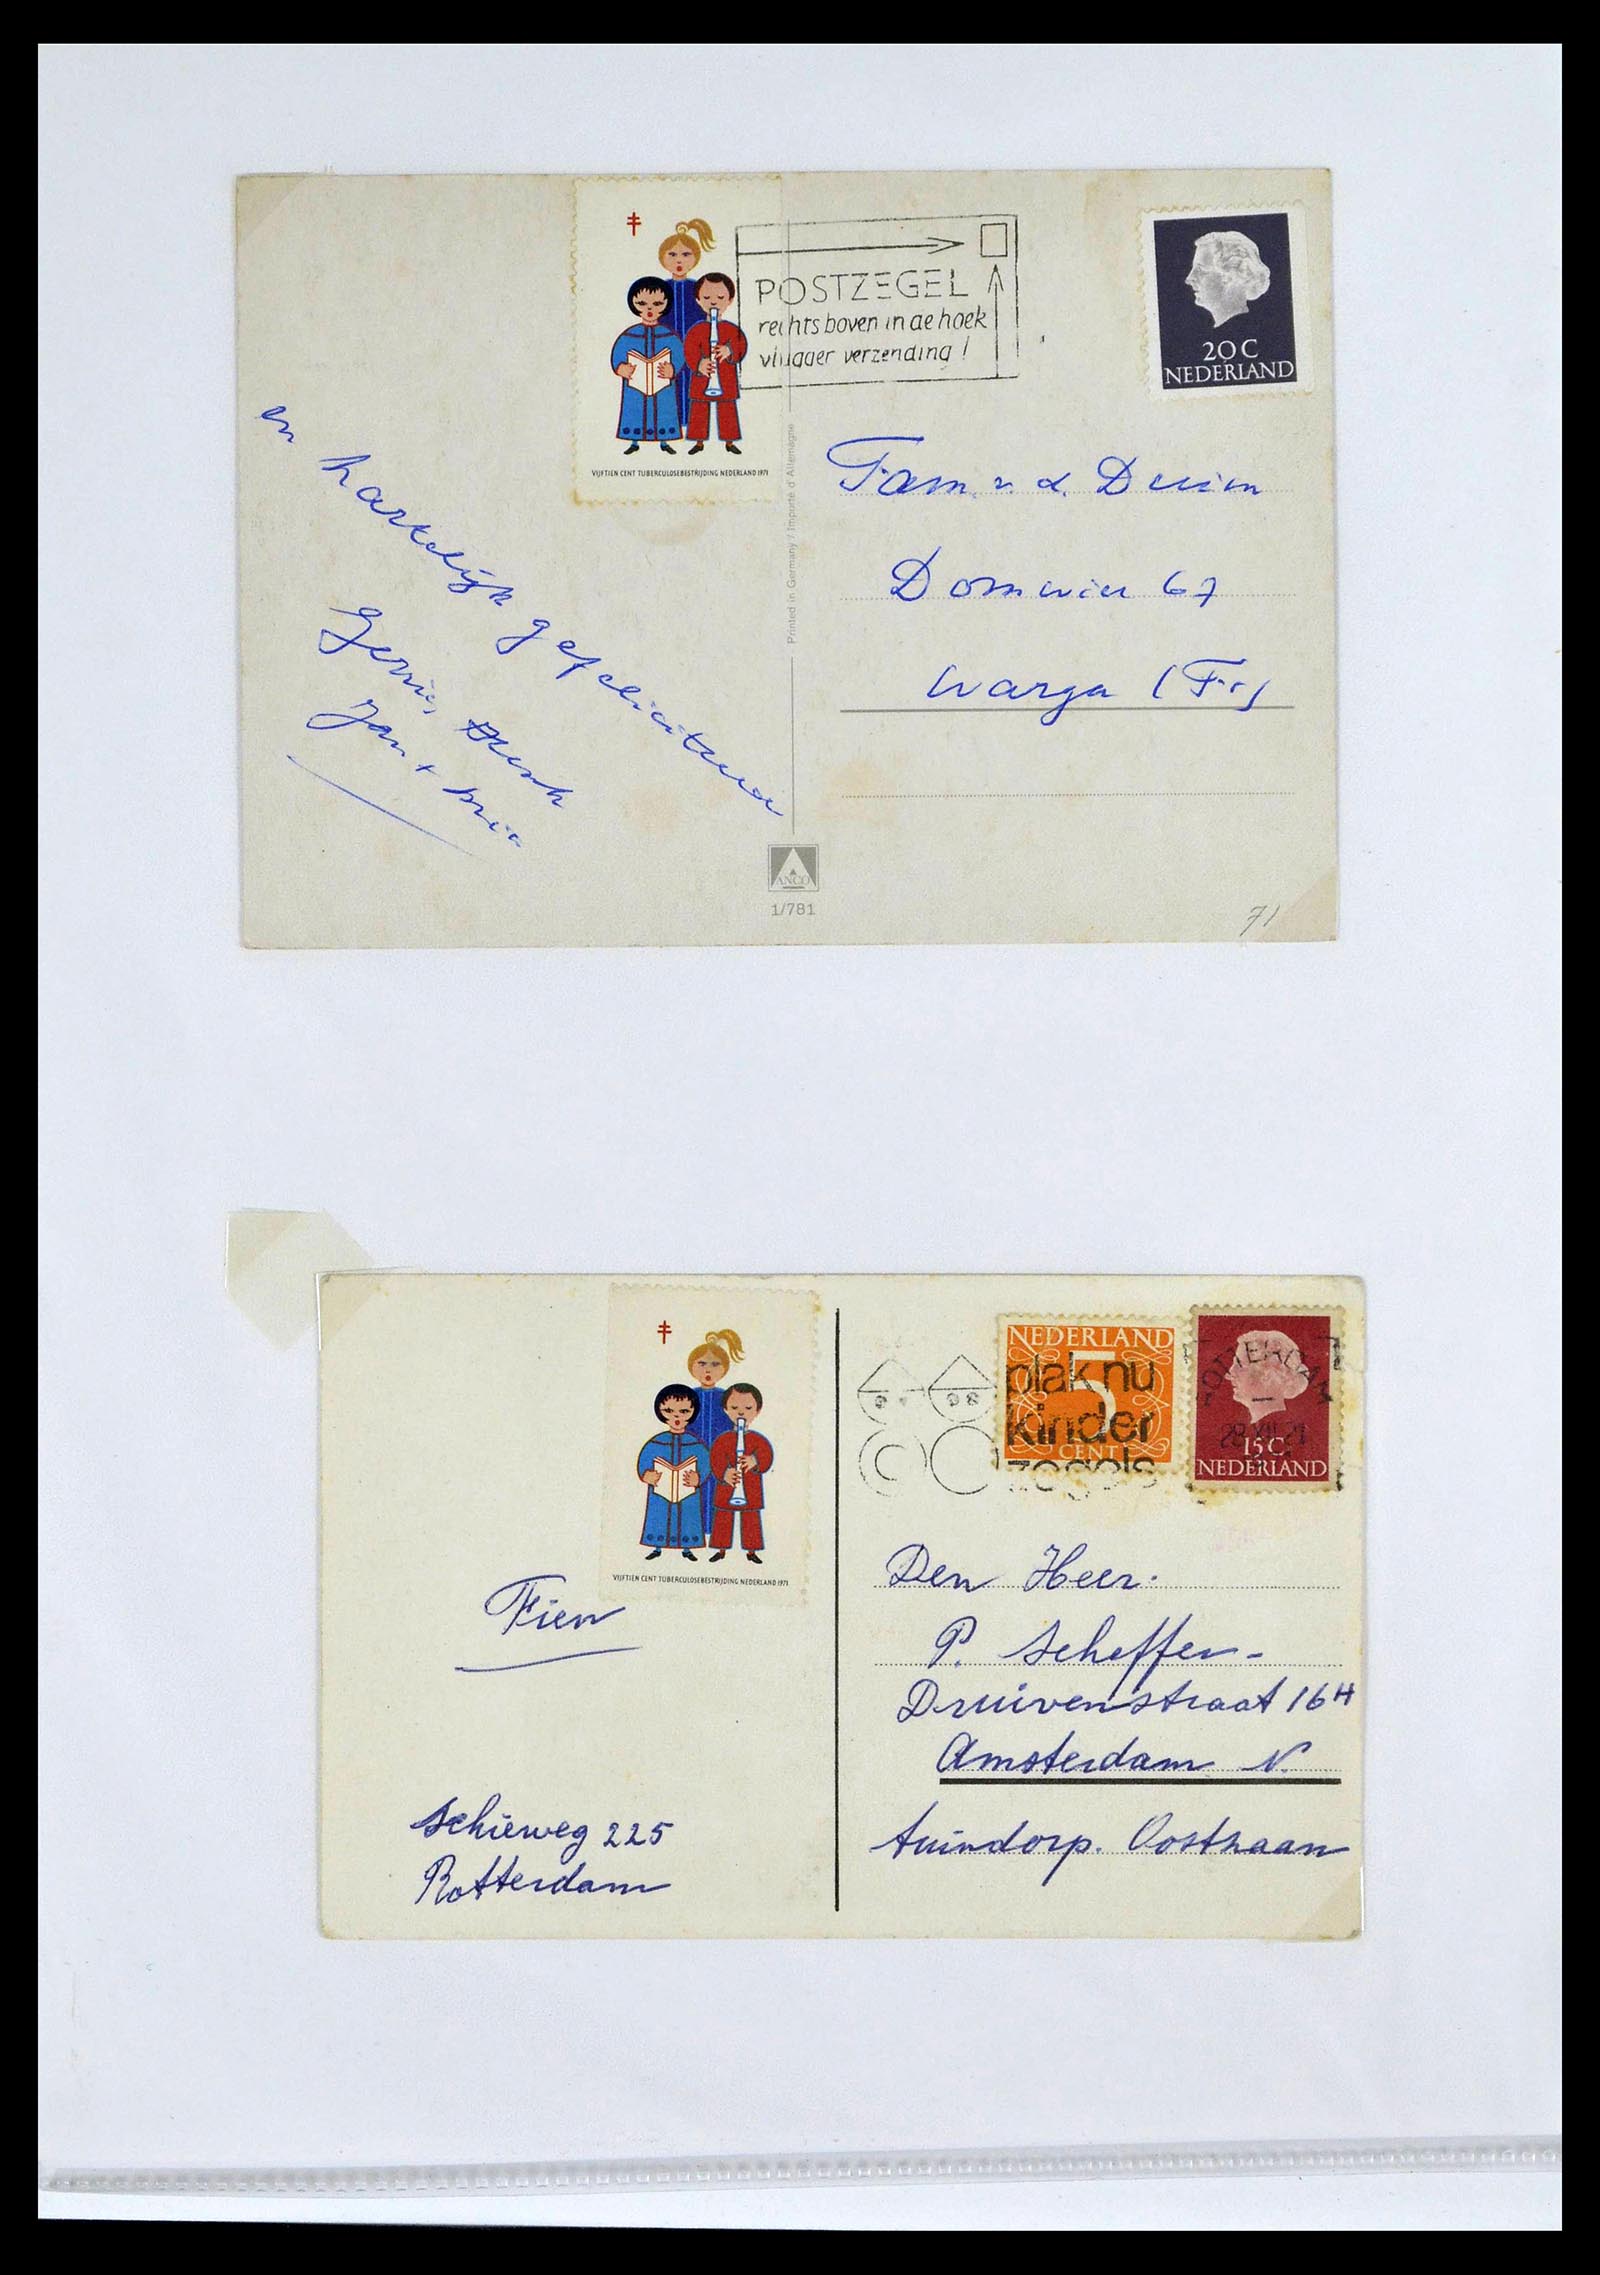 POSTZEGEL
rechts boven in de hoek
vlugger verzending !
20 C
NEDERLAND
VIJFTIEN CENT TUBERCULOSEBESTRIJDING NEDERLAND 1971
en hartelijk gefeliciteerd
Jan +
Printed in Germany / Importé d'Allemagne
Fam. v. d.
67
Warga (Fr)
ANCO
1/781
71
NEDERLAND
5
CENT
plak nu
kinder
zegels
ROTTERDAM
15 C
NEDERLAND
VIJFTIEN CENT TUBERCULOSEBESTRIJDING NEDERLAND 1971
Fien
Schieweg 225
Rotterdam
Den Heer.
P. Scheffer-
Druivenstraat 16H
Amsterdam N.
tuindorp. Oostzaan